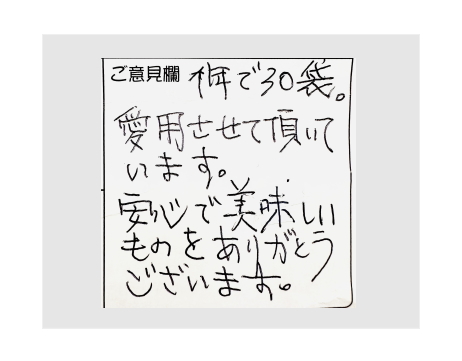 ご意見欄 年で30袋。
愛用させて頂いて
います。
安心で美味しい
ものをありがとう
ございます。